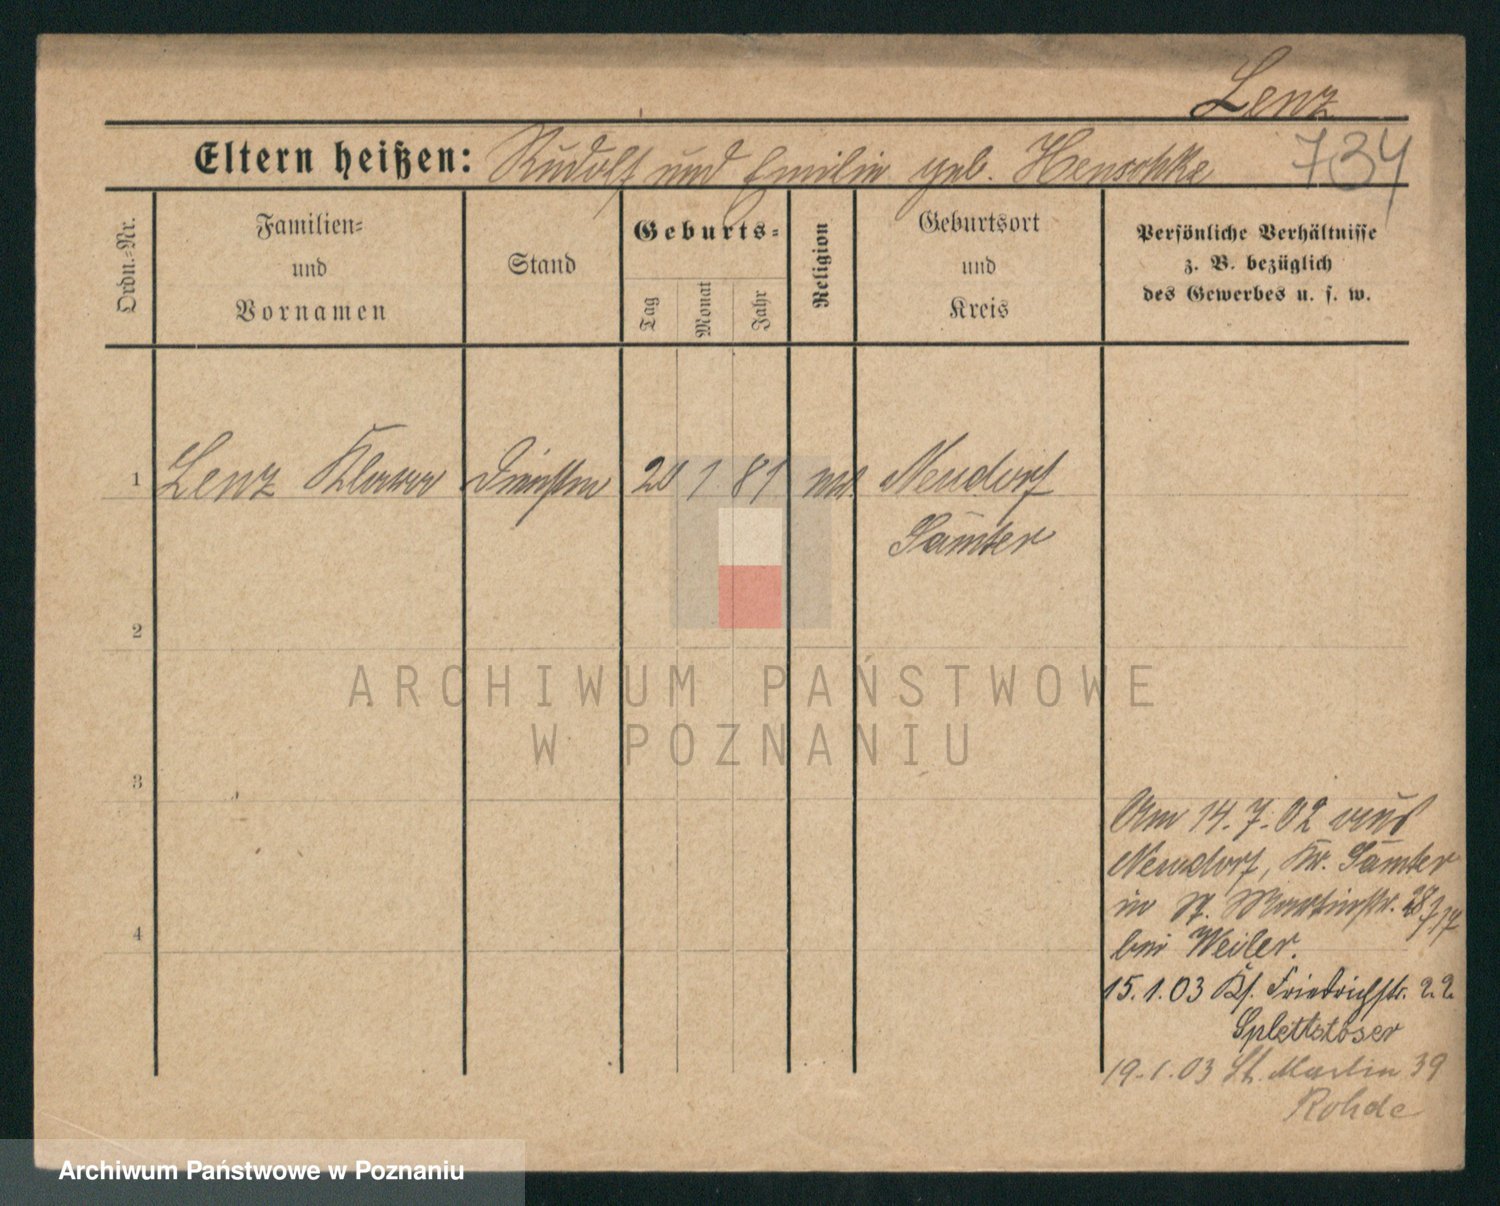 Lenz
Eltern heißen: Rudolf und Emilie geb. Henschke
734
Ordn.-Nr.
Familien-
und
Vornamen
Stand
Geburts-
Tag
Monat
Jahr
Religion
Geburtsort
und
Kreis
Persönliche Verhältnisse
z. B. bezüglich
des Gewerbes u. s. w.
1 Lenz Klara 20 1 81 Neudorf
Samter
2
ARCHIWUM PAŃSTWOWE
W POZNANIU
3
Am 14.7.02 aus
Neudorf, Kr. Samter
in St. Martinstr.
4
bei Weiler.
15.1.03 Friedrichstr. 22
Splettstöser
19.1.03 St. Martin 39
Rohde
Archiwum Państwowe w Poznaniu